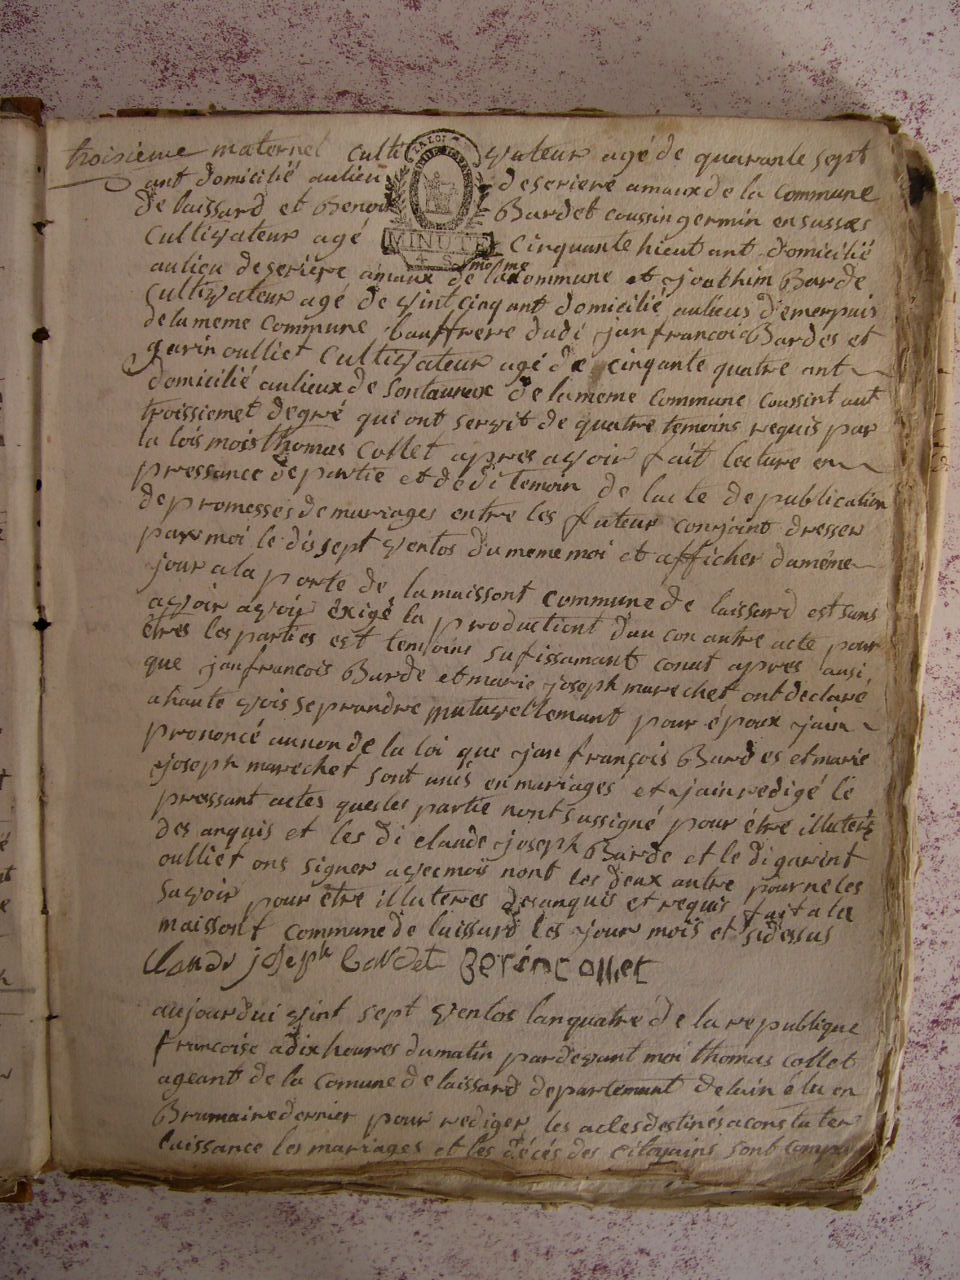 troisieme maternel culti vateur agé de quarante sept
ant domicilié aulieu de seriere amaux de la commune
de laissard et Benoit Bardet coussin germin ensusses
Cultivateur agé Cinquante hieut ant domicilié
LA LOI
MINUTE
4 S
aulieu de seriere amaux de la meme commune et joathim Barde
Cultivateur agé de vint cinq ant domicilié aulieus d'emerpuis
de la meme Commune bauffrere dudi jan francois Bardes et
garin oulliet Cultivateur agé de cinqante quatre ant
domicilié aulieux de de la meme commune coussint aut
troissiemet degré qui ont servit de quatre temoins requis par
la lois mois thomas Collet apres avoir fait lecture en
pressance de partie et de di temoin de lacte de publication
de promesses de mariages entre les futeur conjoint dresser
par moi le dissept ventos du meme moi et afficher dumeme
jour a la porte de la maissont commune de laissard est sans
avoir avoir éxigé la productiont dau con autre acte pour
êtres les parties est temoins sufissamant conut apres ausi
que jan francois Barde et marie joseph marechet ont declaré
ahaute vois se prandre mutuvellemant pour époux jain
prononcé aunon de la loi que jan françois Bardes et marie
joseph marechet sont unis en mariages et jain redigé le
pressant actes quesles partie nont sussigné pour étre illuters
des anquis et les di claude joseph Barde et le di garint
oulliet ons signer avec moi nont les deux autre pour ne les
savoir pour étre illuteres des anquis et requis fait a la
maissont commune de laissard les jour mois et sidessus
Claude joseph bardet gerin collet
aujourdui vint sept ventos lan quatre de la republique
francoise a dix houres du matin pardevant moi thomas collet
ageant de la Comune de laissard departemant de lain élu en
Brumaire dernier pour rediger les actes destinés a constater
luissance les mariages et les décés des citoyains sont compa